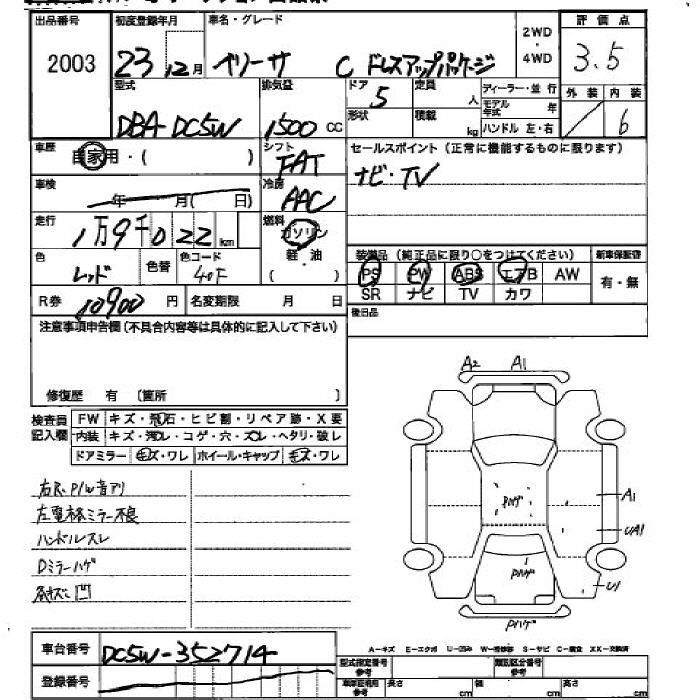 出品番号 初度登録年月 車名・グレード
2003 23 12月 ベリーサ C ドレスアップパッケージ 2WD・4WD
評価点 3.5
型式 DBA-DC5W
排気量 1500 CC
ドア 5 形状
定員 人
積載 kg
ディーラー・並行
モデル年式 年
ハンドル 左・右
外装 内装 6
車歴 自家用・( )
シフト FAT
セールスポイント(正常に機能するものに限ります)
ナビ・TV
車検 年 月( 日)
冷房 AAC
走行 1万9千022km
燃料 ガソリン 軽・油 ( )
色 レッド 色替 色コード 40F
装備品(純正品に限り○をつけてください) 新車保証書
PS PW ABS エアB AW 有・無
SR ナビ TV カワ
R券 10900円 名変期限 月 日
後日品
注意事項申告欄(不具合内容等は具体的に記入して下さい)
修復歴 有 〔箇所 〕
検査員記入欄
FW キズ・飛石・ヒビ割・リペア跡・X要
内装 キズ・汚レ・コゲ・穴・スレ・ヘタリ・破レ
ドアミラー キズ・ワレ ホイール・キャップ キズ・ワレ
A2 A1
右R.P/W音アリ
左電格ミラー不良
ハンドルスレ
Dミラーハゲ
凹
Pハゲ
A1
UA1
Pハゲ
U1
Pハゲ
車台番号 DC5W-352714
登録番号
A-キズ E-エクボ U-凹み W-補修跡 S-サビ C-腐食 XX-交換済
型式指定番号 参考 類別区分番号 参考
参考 長さ cm 幅 cm 高さ cm